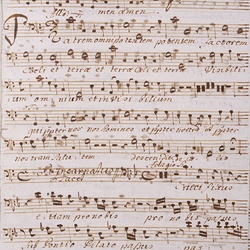 men amen
Patrem omnipotentem potentem factorem
Coeli et terrae et terrae Coeli et terrae Visibili
um omnium et invisibilium
qui propter nos homines et propter nostram propter
nostram salutem Descendit de
Crucifixus
etiam pro nobis pro nobis passus
sub Pontio Pilato passus pas